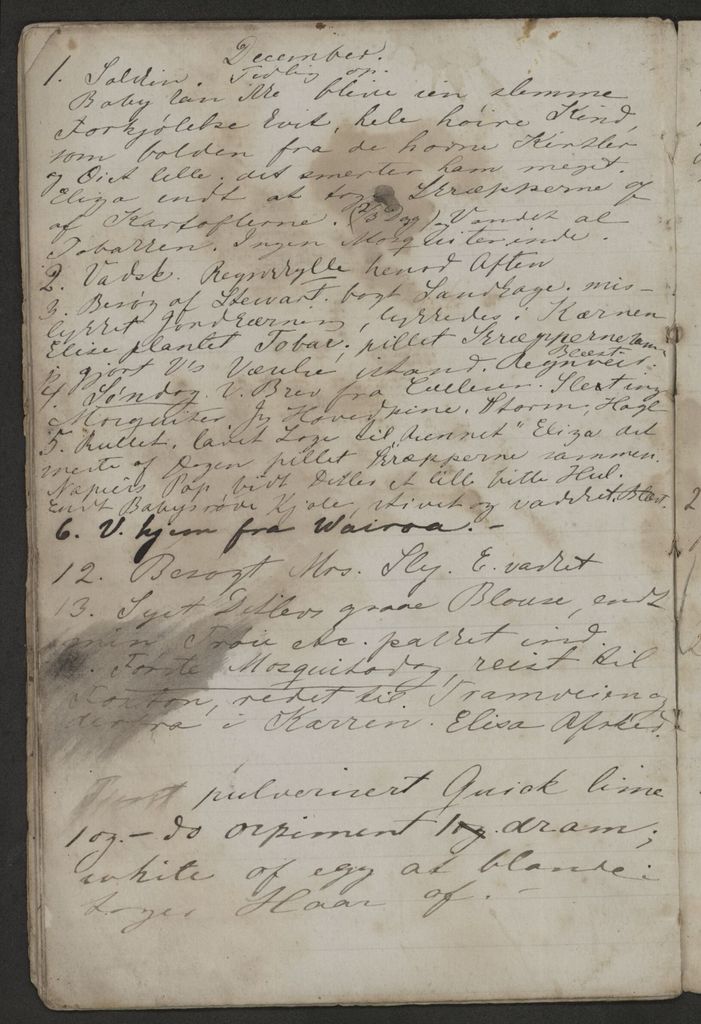 December.
1. Solskin. Tidlig op.
Baby kan ikke blive sin slemme
Forkjølelse kvit, hele høire Kind,
som bolden fra de hovne Kirtler
og Øiet lille. det smerter ham meget.
Eliza endt at tage Skræpperne af
af Kartoflerne. (2/3 ) og Vandet al
Tobakken. Ingen Mosquiter inde.
2. Vadsk. Regnskylle henad Aften
3. Besøg af Stewart. bagt Sandkage. mis-
lykket Jordkærning, lykkedes i Kærnen
Elise plantet Tobak, pillet Skræpperne sam
jeg gjort V's Værelse istand. Regnveir. Blæst
4. Søndag. V. Brev fra Slet ing
Mosquiter. Jeg Hovedpine. Storm, Hagl
5. Rullet, lavet Låge til "hennet" Eliza det
meste af Dagen pillet Skræpperne sammen.
Napiers Pap bidt Ditlev et lille bitte Hul.
endt Babys røde Kjole, stivet og vadsket. Blæst.
6. V. hjem fra Wairoa. -
12. Besøgt Mrs. Sly. E. vasket
13. Syet Ditlevs graae Blouse, endt
min Troie etc. pakket ind.
14. Første Mosquitodag, reist til
Foxton, redet til Tramveien og
derfra i Karren. Elisa Afsked.
pulveriseret Quick lime
1 oz. - do orpiment dram;
white of egg at blande:
tager Haar af. -